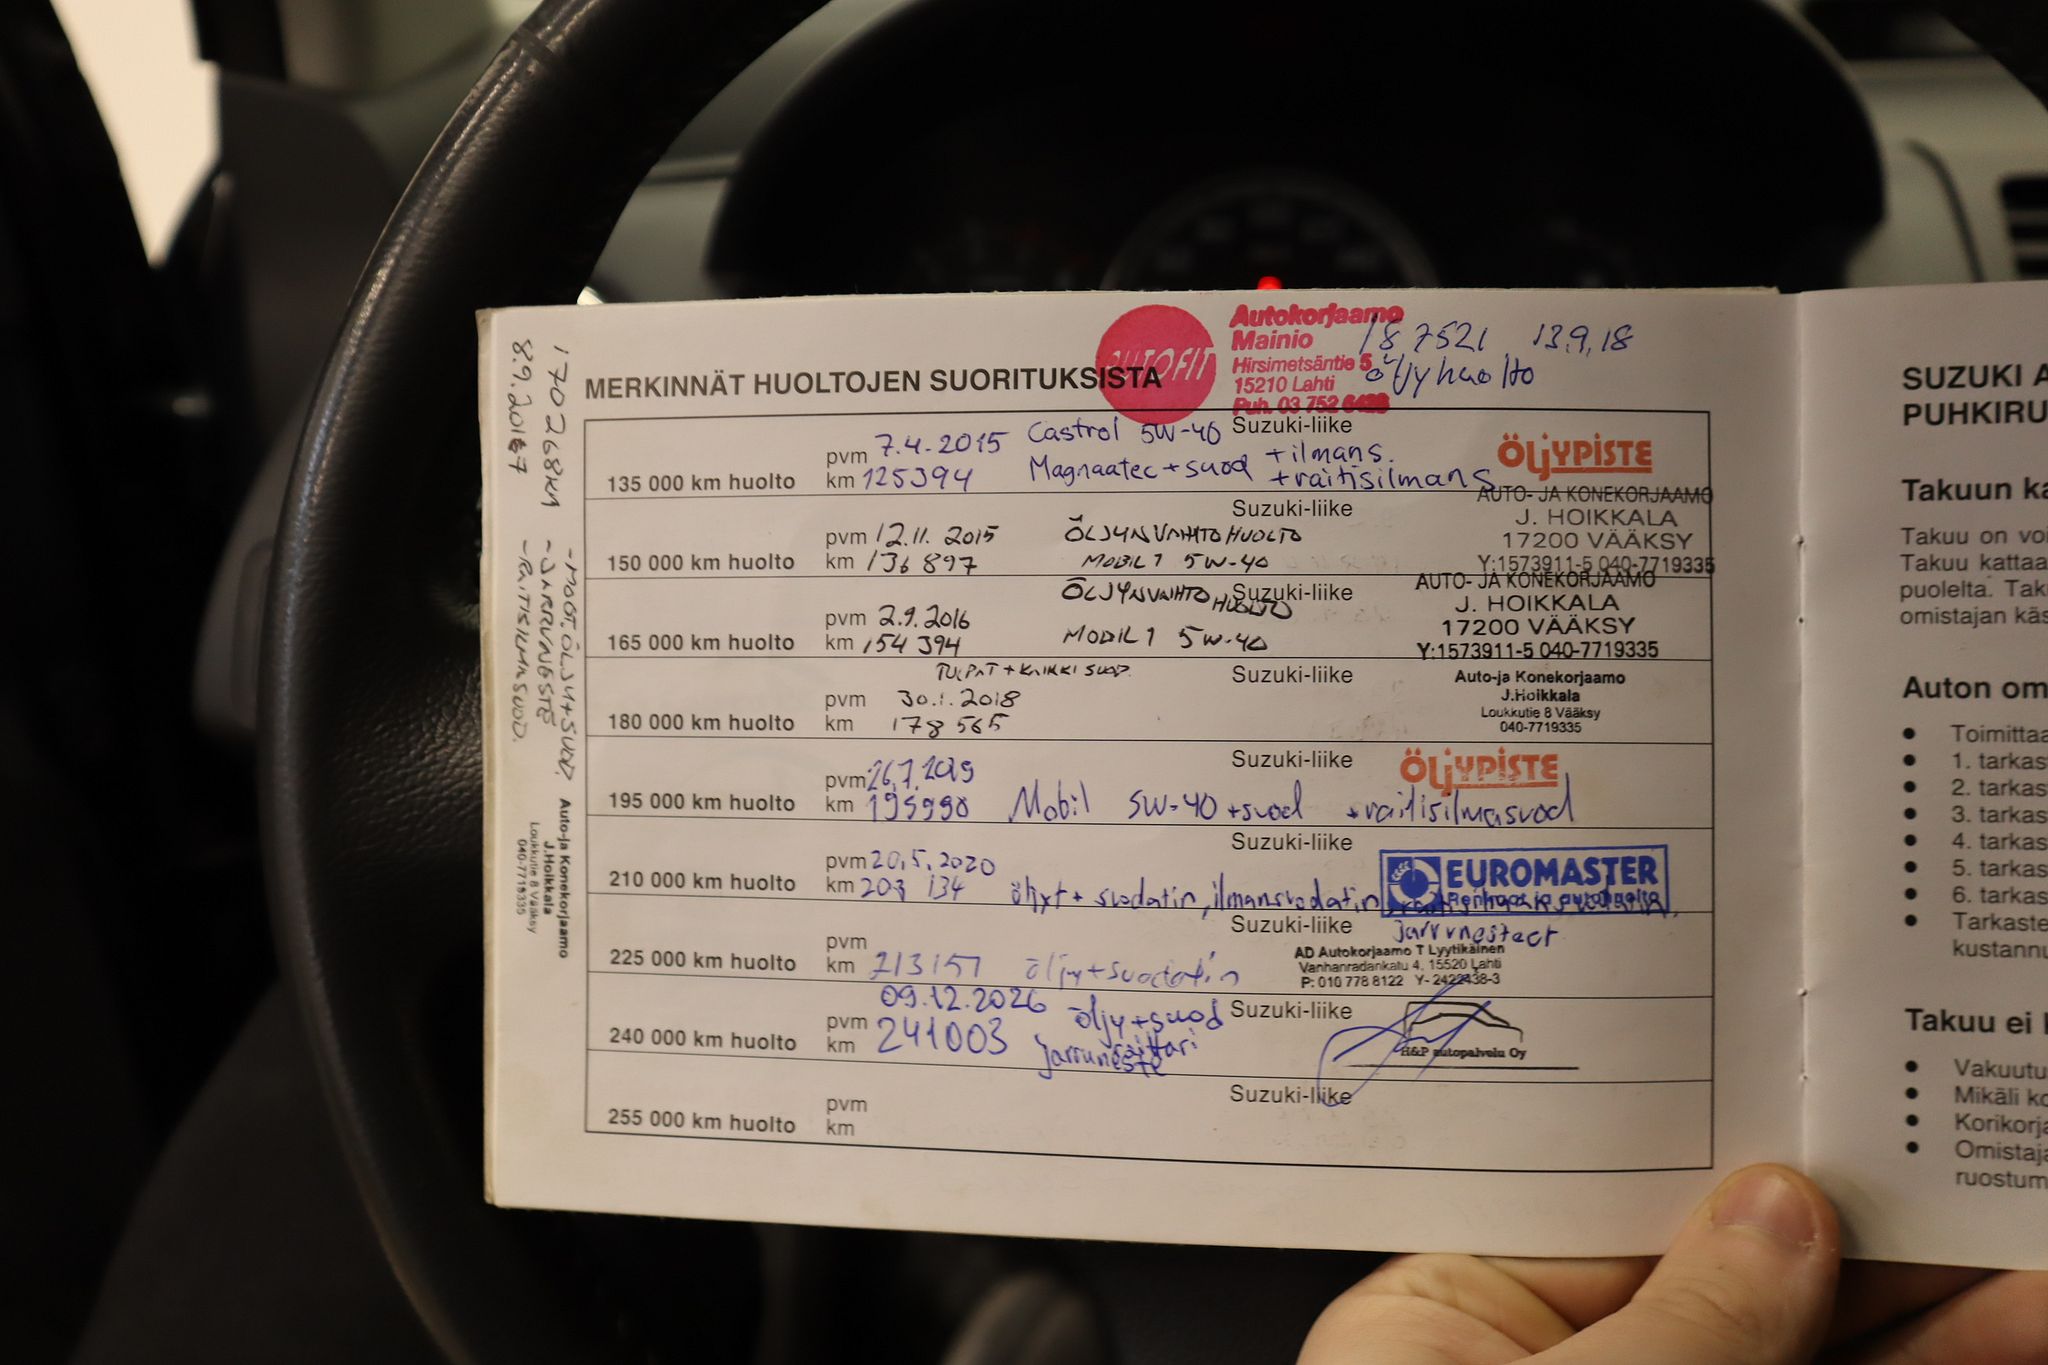 AUTOFIT
Autokorjaamo
Mainio
Hirsimetsäntie 5
15210 Lahti
Puh. 03 752
187521 13.9.18
öljyhuolto
MERKINNÄT HUOLTOJEN SUORITUKSISTA
135 000 km huolto
pvm 7.4.2015 Castrol 5W-40 Suzuki-liike
km 125394 Magnaatec + suod + ilmans.
+ raitisilmans
ÖljYPISTE
150 000 km huolto
Suzuki-liike
pvm 12.11.2015 ÖLJYNVAIHTOHUOLTO
km 136 897 MOBIL 1 5W-40
AUTO- JA KONEKORJAAMO
J. HOIKKALA
17200 VÄÄKSY
Y:1573911-5 040-7719335
165 000 km huolto
Suzuki-liike
pvm 2.9.2016 ÖLJYNVAIHTO HUOLTO
km 154 394 MOBIL 1 5W-40
AUTO- JA KONEKORJAAMO
J. HOIKKALA
17200 VÄÄKSY
Y:1573911-5 040-7719335
180 000 km huolto
TULPAT + KAIKKI SUOD. Suzuki-liike
pvm 30.1.2018
km 178 565
Auto-ja Konekorjaamo
J.Hoikkala
Loukkutie 8 Vääksy
040-7719335
195 000 km huolto
Suzuki-liike
pvm 26.7.2019
km 195990 Mobil 5W-40 + suod + raitisilmasuod
ÖljYPISTE
210 000 km huolto
Suzuki-liike
pvm 20.5.2020
km 203 134 öljyt + suodatin, ilmansuodatin,
jarrunesteet
EUROMASTER
Renhaat ja autohuolto
225 000 km huolto
Suzuki-liike
pvm
km 213157 öljy + suodatin
AD Autokorjaamo T Lyytikäinen
Vanhanradankatu 4, 15520 Lahti
P: 010 778 8122 Y- 2422438-3
240 000 km huolto
09.12.2026 öljy + suod Suzuki-liike
pvm
km 241003
jarruneste
H&P autopalvelu Oy
255 000 km huolto
Suzuki-liike
pvm
km
170268KM - MOOT. ÖLJY + SUOD.
- JARRUNESTE
8.9.2017 - RAITISILMASUOD.
Auto-ja Konekorjaamo
J.Hoikkala
Loukkutie 8 Vääksy
040-7719335
SUZUKI A
PUHKIRU
Takuun ka
Takuu on voi
Takuu kattaa
puolelta. Tak
omistajan käs
Auton om
• Toimittaa
• 1. tarkas
• 2. tarkas
• 3. tarkas
• 4. tarkas
• 5. tarkas
• 6. tarkas
• Tarkaste
kustannu
Takuu ei k
• Vakuutu
• Mikäli ko
• Korikorja
• Omistaja
ruostum